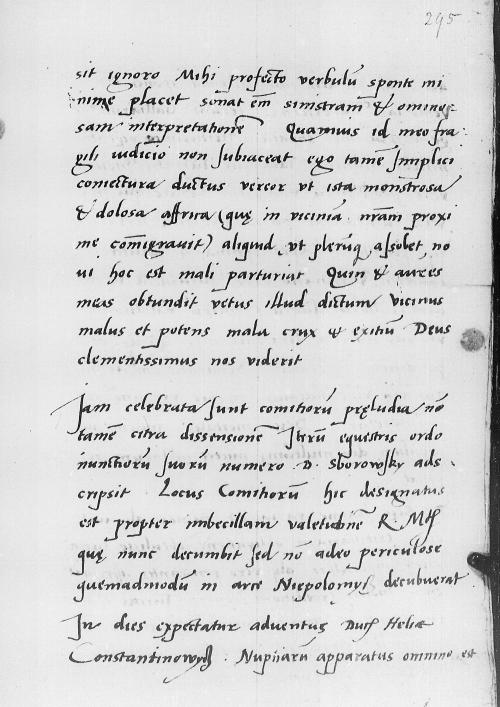 295
sit ignoro Mihi profecto verbulū sponte mi
nime placet sonat em̄ sinistram̄ & omino-
sam interpretationē Quamvis id meo fra
gili iudicio non subiaceat ego tamē simplici
coniectura ductus vereor vt ista monstrosa
& dolosa affrica (quę in viciniā nr̄am proxi
me com̄igravit) aliquid vt plerūq assolet no
ui hoc est mali parturiat Quin & aures
meas obtundit vetus illud dictum vicinus
malus et potens mala crux & exitiū Deus
clementissimus nos viderit
Jam celebrata sunt comitiorū pręludia nō
tamē citra dissensionē Iterū equestris ordo
nunctiorū suorū numero D. Sborowsky ads
cripsit Locus Comitiorū hic designatus
est propter imbecillam valetudinē R. Mtis
quę nunc decumbit sed nō adeo periculose
quemadmodū in arce Niepolomyż decubuerat
In dies expectatur adventus Ducis Heliæ
Constantinowycz. Nuptiarū apparatus omnino est